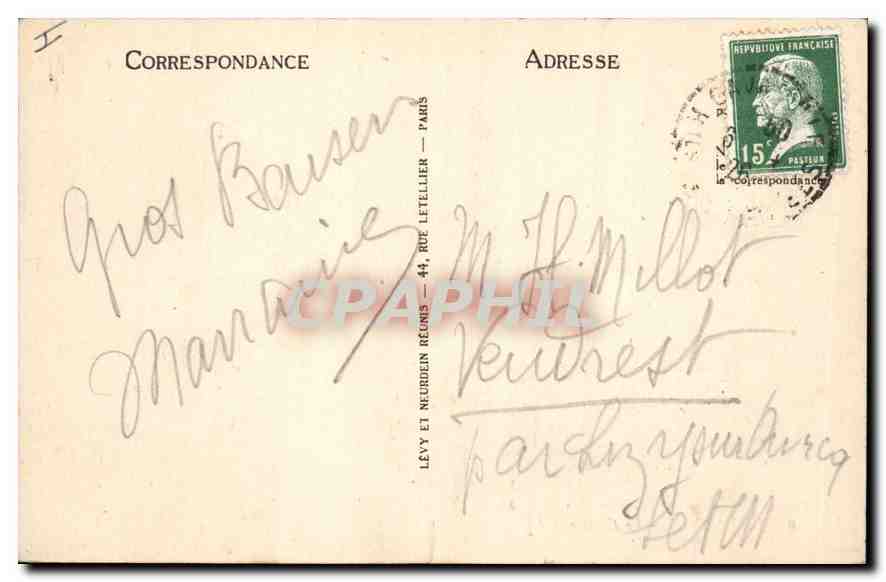 I
CORRESPONDANCE
ADRESSE
REPVBLIQVE FRANÇAISE
15c
PASTEUR
correspondance
Gros Baisers
LÉVY ET NEURDEIN RÉUNIS — 44, RUE LETELLIER — PARIS
M. H. Millot
Vendrest
par Lizy sur Ourcq
Set M
CPAPHIL